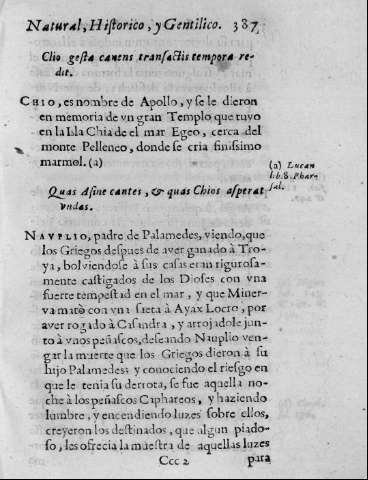 Natural, Hiſtorico, y Gentilico. 387
Clio geſta canens tranſactis tempora re-
dit.
CHIO, es nombre de Apollo, y se le dieron
en memoria de vn gran Templo que tuvo
en la Isla Chia de el mar Egeo, cerca del
monte Pelleneo, donde se cria finiſsimo
marmol. (a)
(a) Lucan
lib. 8. Phar-
ſal.
Quas Aſine cautes, & quas Chios aſperat
vndas.
NAVPLIO, padre de Palamedes, viendo, que
los Griegos deſpues de aver ganado à Tro-
ya, bolviendoſe à ſus caſas eran riguroſa-
mente caſtigados de los Dioſes con vna
fuerte tempeſtad en el mar, y que Miner-
va matò con vna ſaeta à Ayax Locro, por
aver rogado à Caſandra, y arrojadole jun-
to à vnos peñaſcos, deſeando Nauplio ven-
gar la muerte que los Griegos dieron à ſu
hijo Palamedes; y conociendo el rieſgo en
que le tenia ſu derrota, se fue aquella no-
che à los peñaſcos Caphareos, y haziendo
lumbre, y encendiendo luzes ſobre ellos,
creyeron los deſtinados, que algun piado-
ſo, les ofrecia la mueſtra de aquellas luzes
Ccc 2 para